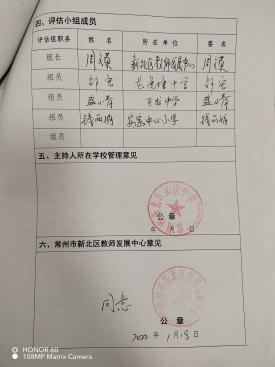 四、评估小组成员
评估组职务 姓 名 所 在 单 位 签 名
组长 新北区教师发展中心
组员
组员 飞龙中学
组员 钱丽娟 安家中心小学 钱丽娟
五、主持人所在学校管理意见
公 章
年 月 日
六、常州市新北区教师发展中心意见
同意
公 章
2022 年 1 月 18 日
HONOR 60
108MP Matrix Camera